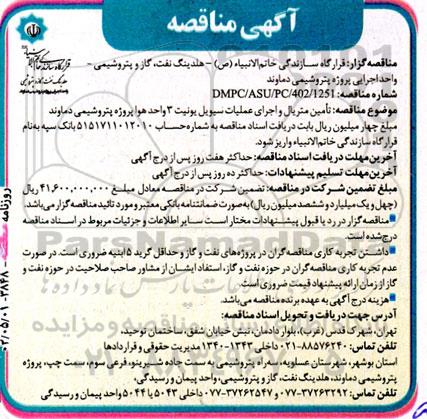 آگهی مناقصه
مناقصه‌گزار: قرارگاه سازندگی خاتم‌الانبیاء (ص) - هلدینگ نفت، گاز و پتروشیمی -
واحد اجرایی پروژه پتروشیمی دماوند
شماره مناقصه: DMPC/ASU/PC/402/1251
موضوع مناقصه: تأمین متریال و اجرای عملیات سیویل یونیت ۳ واحد هوا پروژه پتروشیمی دماوند
مبلغ چهار میلیون ریال بابت دریافت اسناد مناقصه به شماره حساب ۵۱۵۱۷۱۱۰۱۲۰۱۰ بانک سپه به‌نام
قرارگاه سازندگی خاتم‌الانبیاء واریز شود.
آخرین مهلت دریافت اسناد مناقصه: حداکثر هفت روز پس از درج آگهی
آخرین مهلت تسلیم پیشنهادات: حداکثر ده روز پس از درج آگهی
مبلغ تضمین شرکت در مناقصه: تضمین شرکت در مناقصه معادل مبلغ ۴۱,۶۰۰,۰۰۰,۰۰۰ ریال
(چهل و یک میلیارد و ششصد میلیون ریال) به‌صورت ضمانتنامه بانکی معتبر و مورد تائید مناقصه‌گزار می‌باشد.
مناقصه‌گزار در رد یا قبول پیشنهادات مختار است سایر اطلاعات و جزئیات مربوط در اسناد مناقصه
درج شده است.
داشتن تجربه کاری مناقصه‌گران در پروژه‌های نفت و گاز و حداقل گرید ۵ ابنیه ضروری است. در صورت
عدم تجربه کاری مناقصه‌گران در حوزه نفت و گاز، استفاد ایشان از مشاور صاحب صلاحیت در حوزه نفت و
گاز از زمان ارائه پیشنهاد قیمت ضروری است.
هزینه درج آگهی به عهده برنده مناقصه می‌باشد.
آدرس جهت دریافت و تحویل اسناد مناقصه:
تهران، شهرک قدس (غرب)، بلوار دادمان، نبش خیابان شفق، ساختمان توحید،
تلفن تماس: ۸۸۵۷۶۲۴۰-۰۲۱ داخلی ۱۳۴۳-۱۳۴۰ مدیریت حقوقی و قراردادها
استان بوشهر، شهرستان عسلویه، سه‌راه پتروشیمی به سمت جاده شیرینو، فرعی سوم، سمت چپ، پروژه
پتروشیمی دماوند، هلدینگ نفت، گاز و پتروشیمی، واحد پیمان و رسیدگی،
تلفن تماس: ۳۷۲۶۳۲۹۲-۰۷۷ و ۳۷۲۶۲۵۴۷-۰۷۷ داخلی ۵۰۴۳ یا ۵۰۴۴ واحد پیمان و رسیدگی